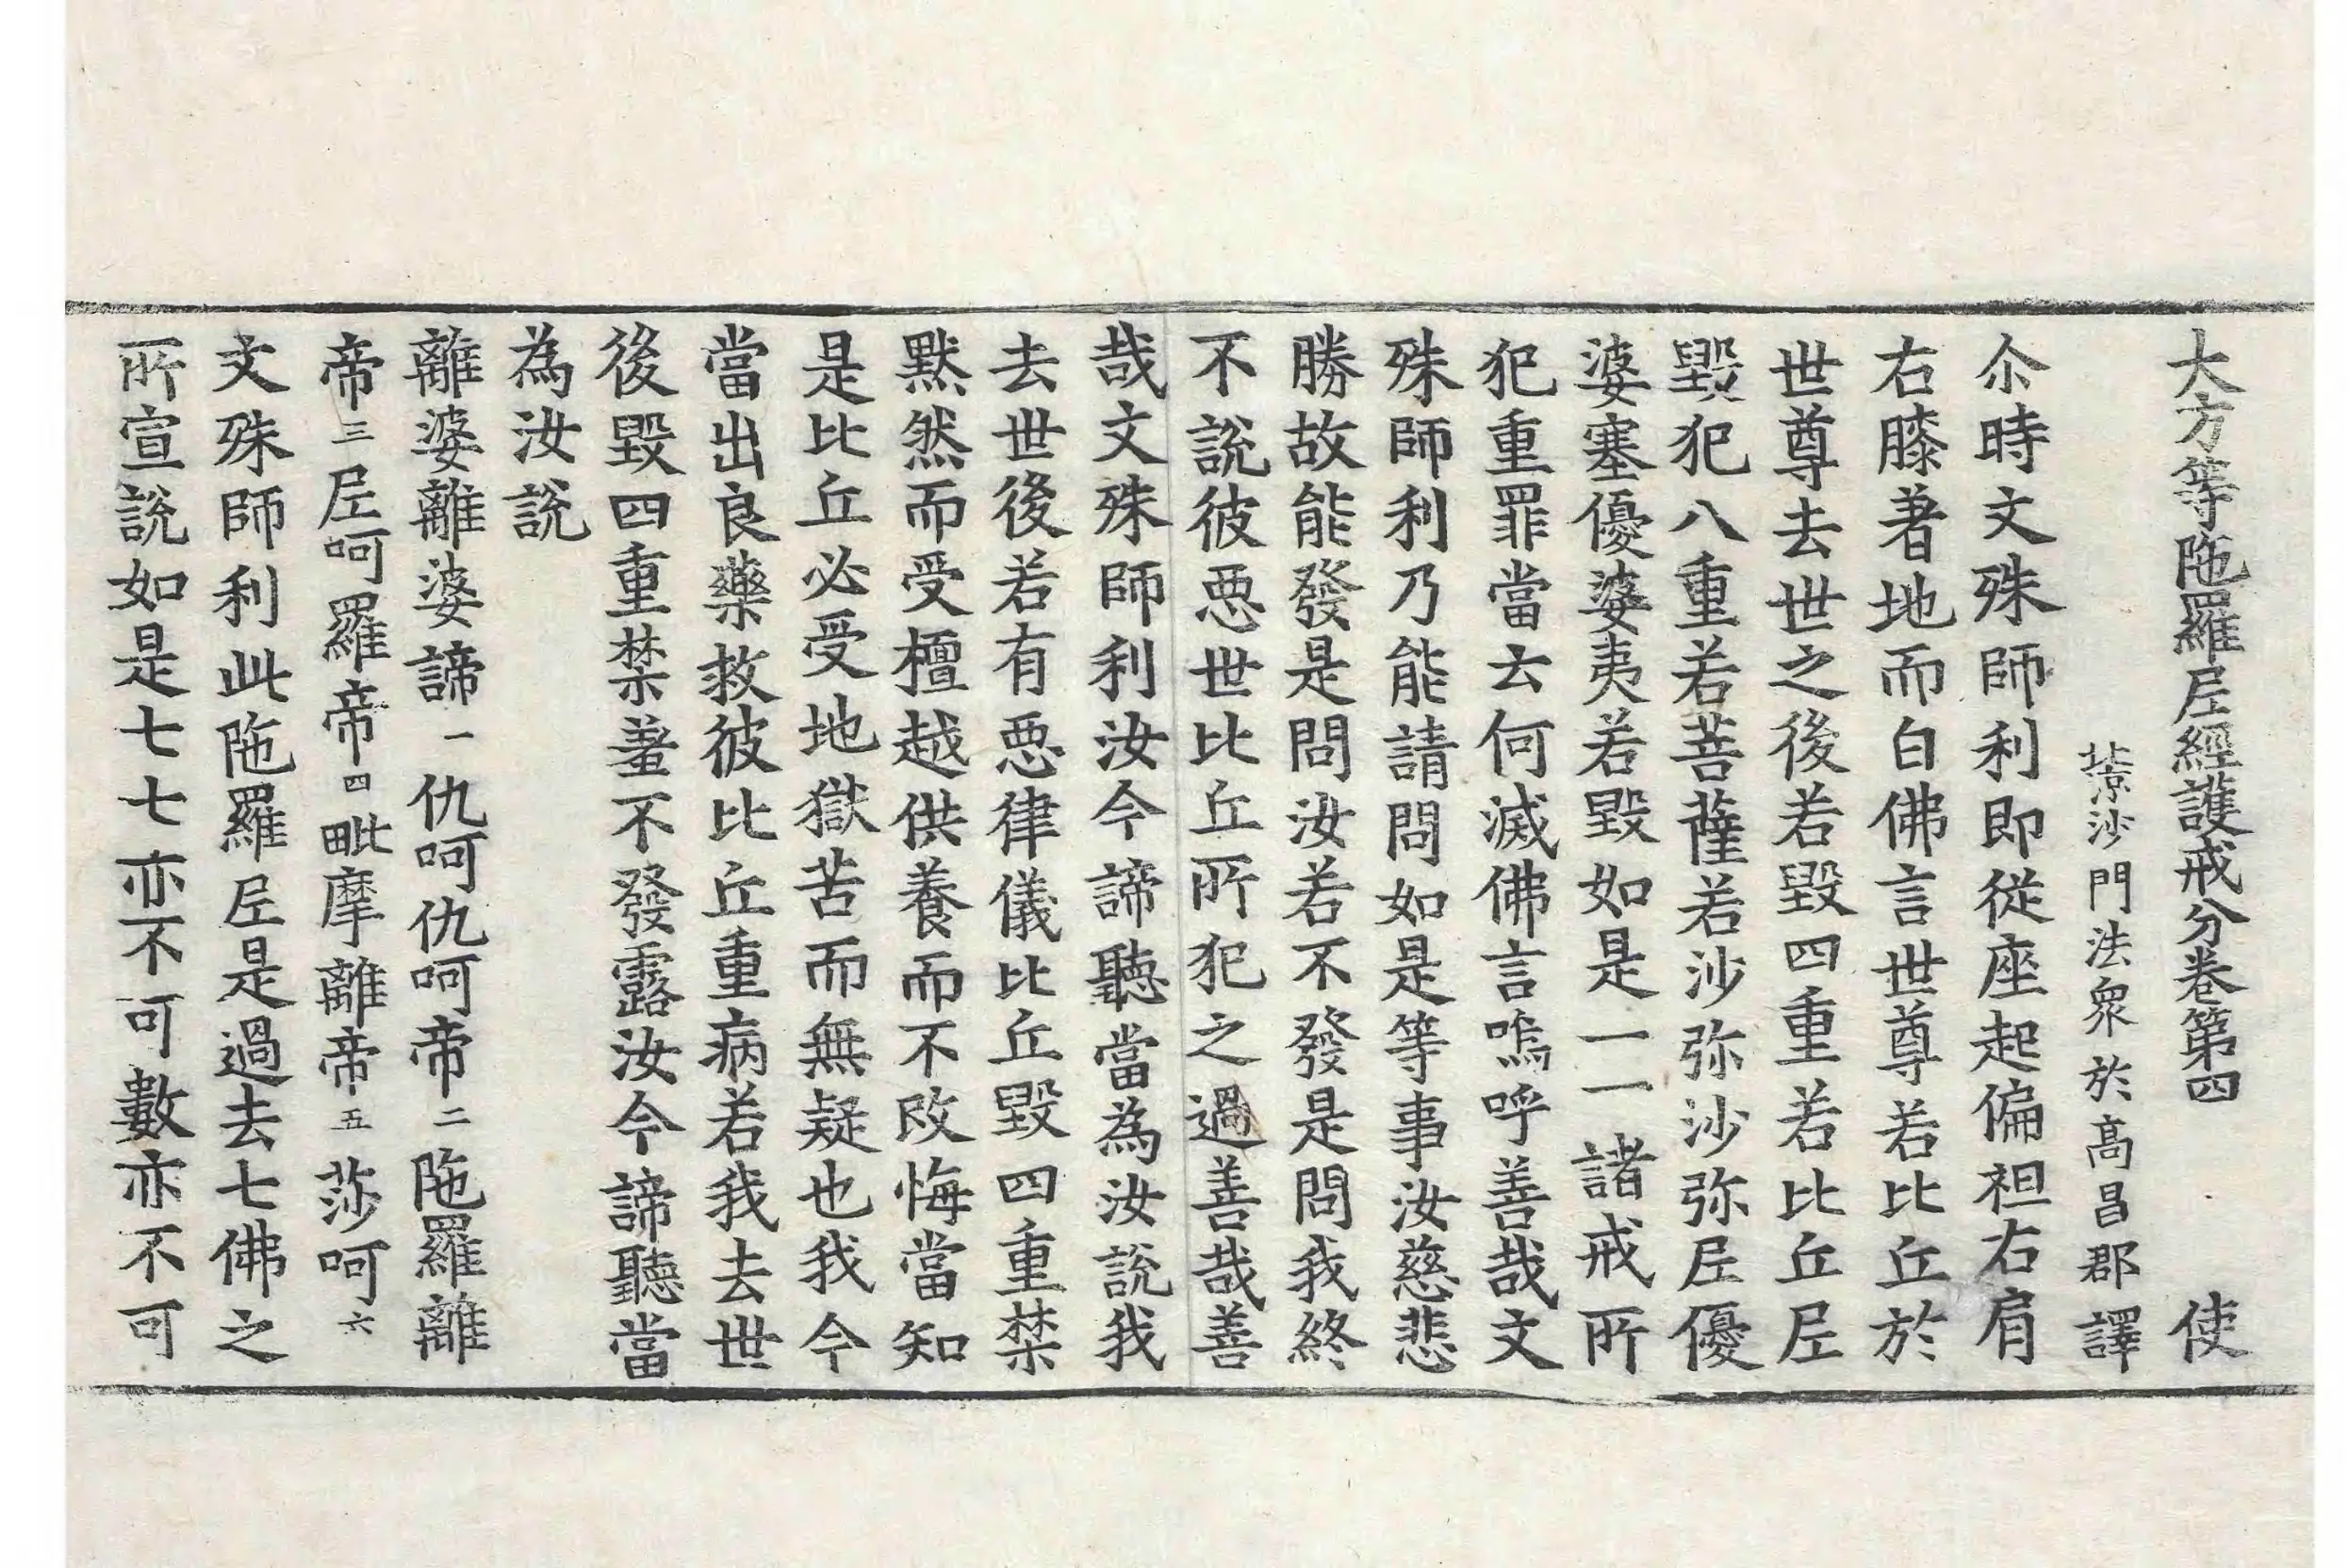 大方等陁羅尼經護戒分卷第四 使
北涼沙門法衆於高昌郡譯
尒時文殊師利即從座起偏袒右肩
右膝著地而白佛言世尊若比丘於
世尊去世之後若毀四重若比丘尼
毀犯八重若菩薩若沙弥沙弥尼優
婆塞優婆夷若毀如是一一諸戒所
犯重罪當去何滅佛言嗚呼善哉文
殊師利乃能請問如是等事汝慈悲
勝故能發是問汝若不發是問我終
不說彼惡世比丘所犯之過善哉善
哉文殊師利汝今諦聽當為汝說我
去世後若有惡律儀比丘毀四重禁
默然而受檀越供養而不改悔當知
是比丘必受地獄苦而無疑也我今
當出良藥救彼比丘重病若我去世
後毀四重禁羞不發露汝今諦聽當
為汝說
離婆離婆諦一仇呵仇呵帝二陁羅離
帝三尼呵羅帝四毗摩離帝五莎呵六
文殊師利此陁羅尼是過去七佛之
所宣說如是七七亦不可數亦不可